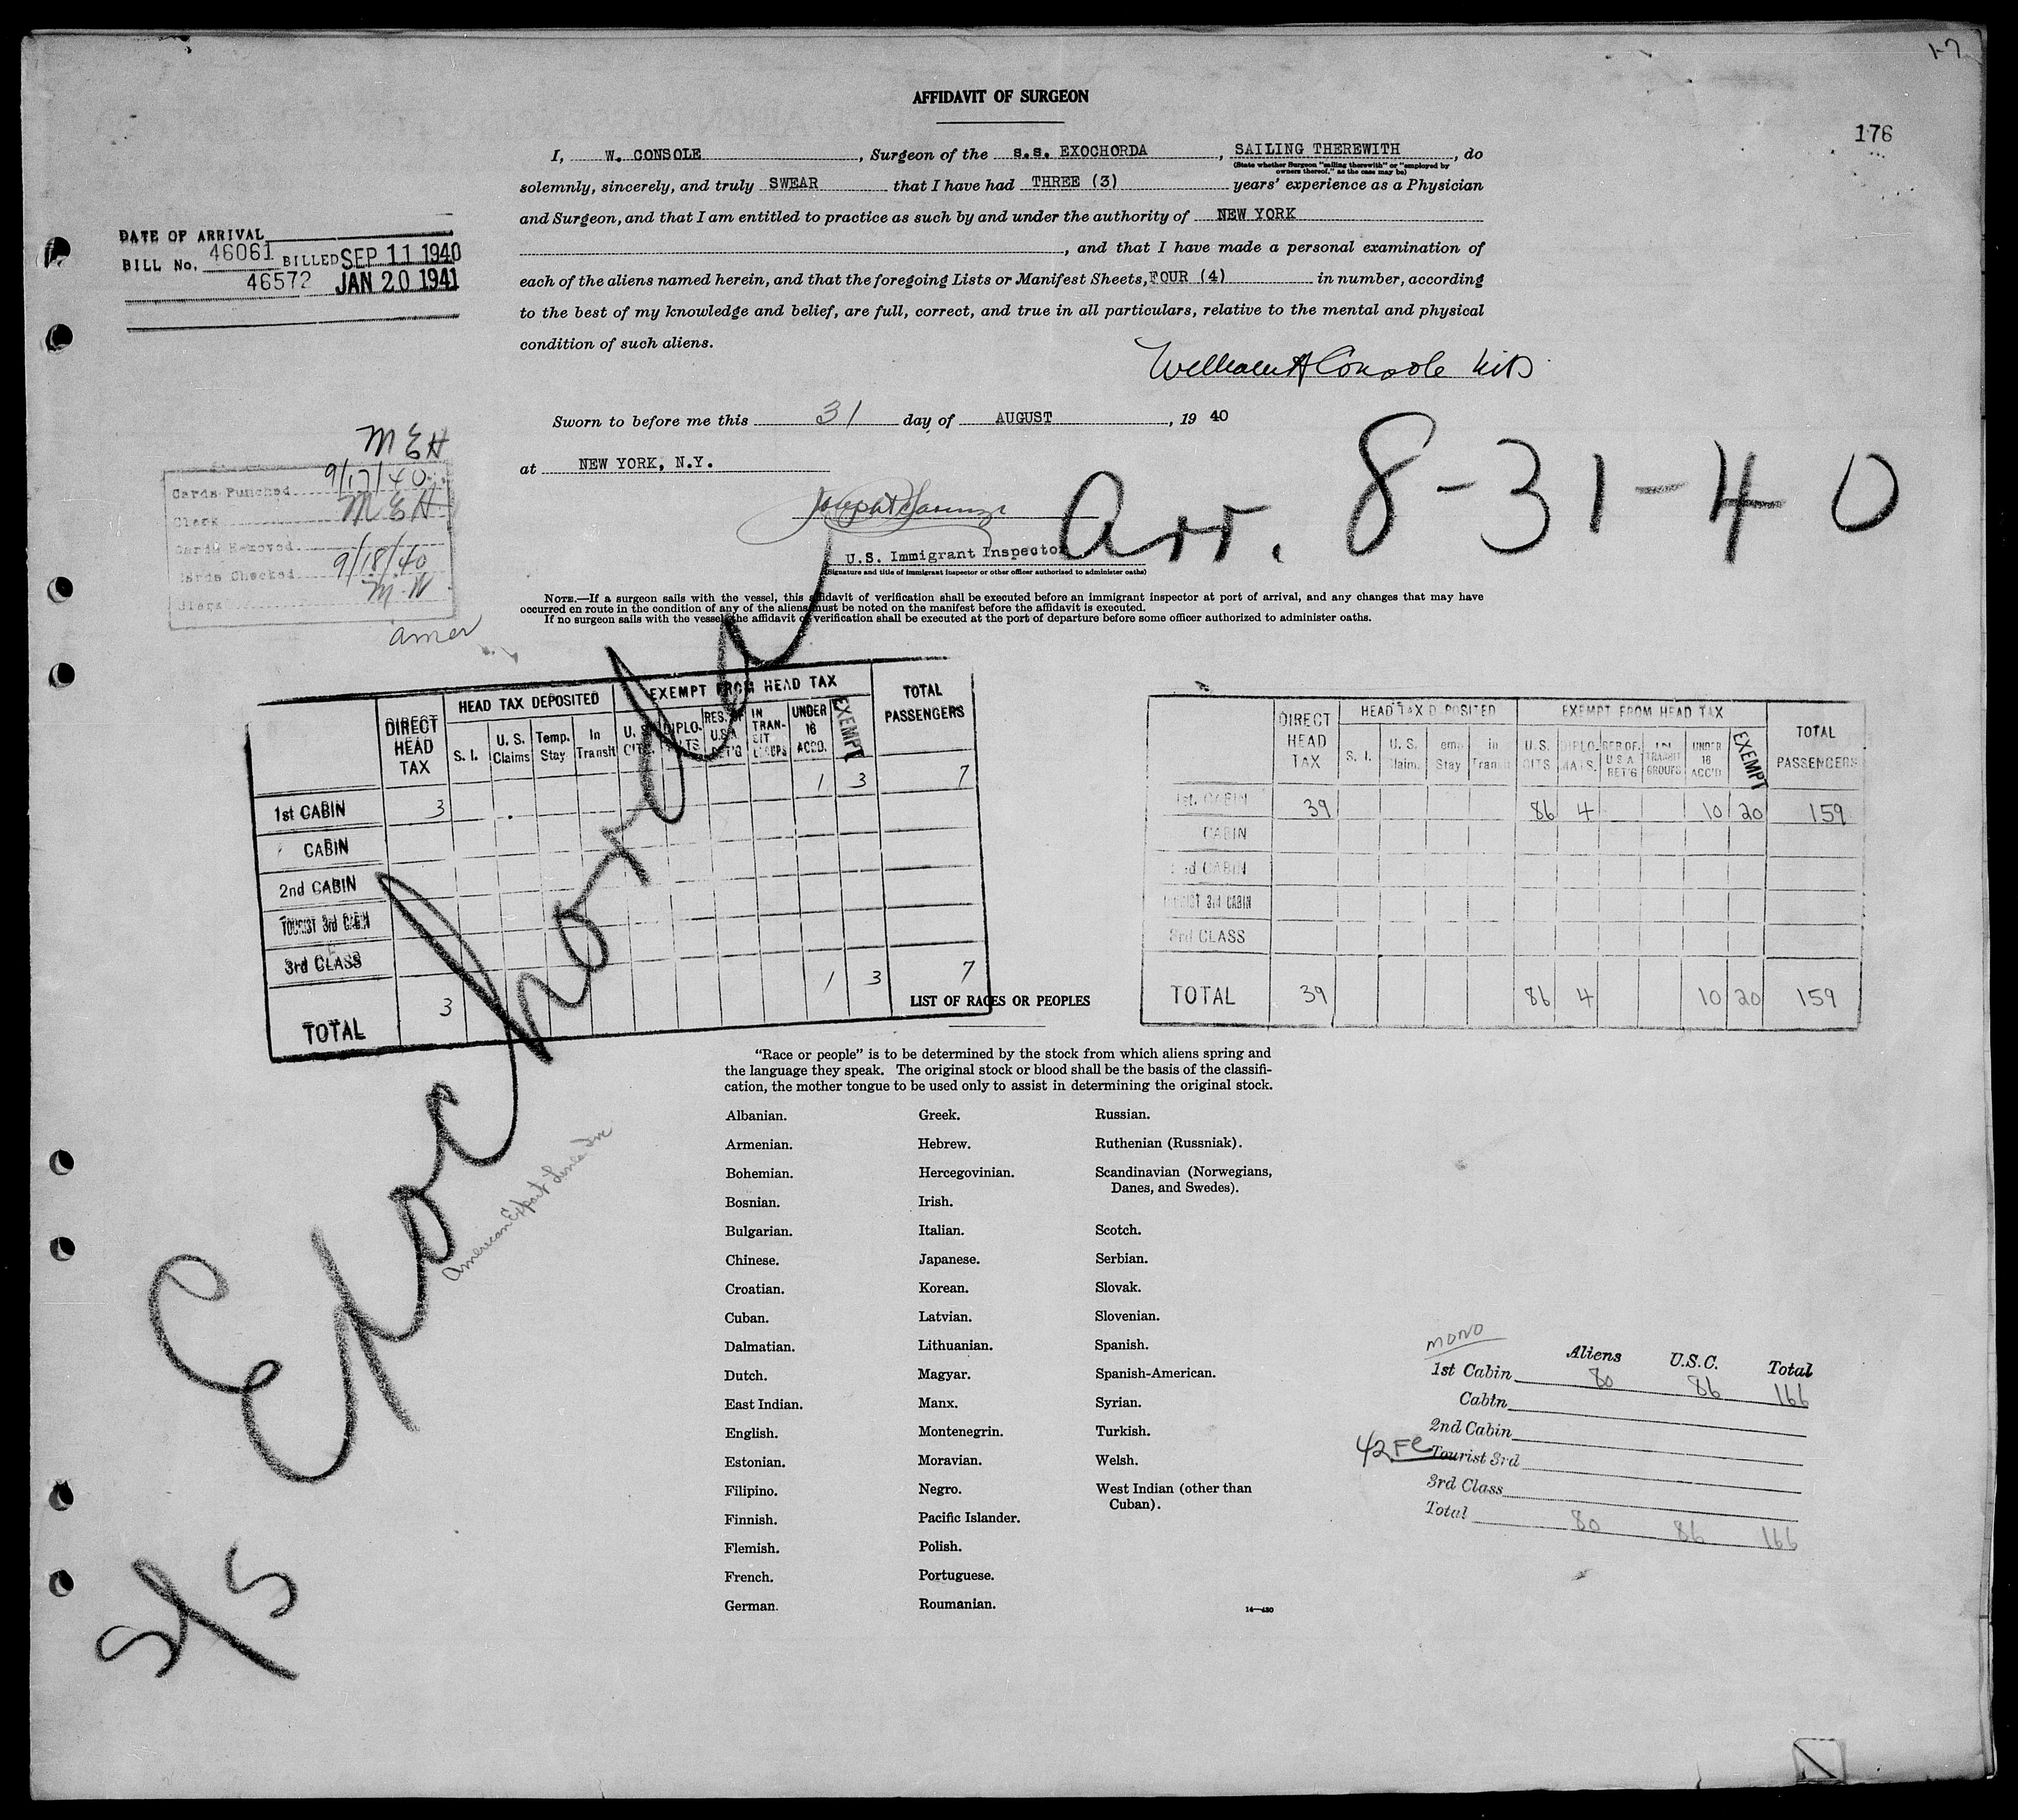 1-7
176
AFFIDAVIT OF SURGEON
I, W. CONSOLE, Surgeon of the s.s. EXOCHORDA, SAILING THEREWITH, do
(State whether Surgeon "sailing therewith" or "employed by owners thereof," as the case may be)
solemnly, sincerely, and truly SWEAR that I have had THREE (3) years' experience as a Physician
and Surgeon, and that I am entitled to practice as such by and under the authority of NEW YORK
, and that I have made a personal examination of
each of the aliens named herein, and that the foregoing Lists or Manifest Sheets, FOUR (4) in number, according
to the best of my knowledge and belief, are full, correct, and true in all particulars, relative to the mental and physical
condition of such aliens.
DATE OF ARRIVAL
BILL No. 46061 BILLED SEP 11 1940
46572 JAN 20 1941
William A Console M.D.
Sworn to before me this 31 day of AUGUST, 19 40
at NEW YORK, N.Y.
U.S. Immigrant Inspector
(Signature and title of immigrant inspector or other officer authorized to administer oaths)
Arr. 8-31-40
MEH
Cards Punched 9/17/40
Clerk MEH
Cards Removed
Cards Checked 9/18/40
Clerk M.W
amer
NOTE.—If a surgeon sails with the vessel, this affidavit of verification shall be executed before an immigrant inspector at port of arrival, and any changes that may have
occurred en route in the condition of any of the aliens must be noted on the manifest before the affidavit is executed.
If no surgeon sails with the vessel, the affidavit of verification shall be executed at the port of departure before some officer authorized to administer oaths.
DIRECT HEAD TAX HEAD TAX DEPOSITED EXEMPT FROM HEAD TAX TOTAL PASSENGERS
S. I. U. S. Claims Temp. Stay In Transit U. S. CITS. DIPLOMATS RES. OF U.S.A. RET'G IN TRANSIT GROUPS UNDER 16 ACCD. EXEMPT
1st CABIN 3 1 3 7
CABIN
2nd CABIN
TOURIST 3rd CABIN
3rd CLASS
TOTAL 3 1 3 7
DIRECT HEAD TAX HEAD TAX DEPOSITED EXEMPT FROM HEAD TAX TOTAL PASSENGERS
S. I. U. S. Claim. Temp Stay in Transit U.S. CITS DIPLOMATS. RES OF. U S A RET'G IN TRANSIT GROUPS UNDER 16 ACC'D EXEMPT
1st. CABIN 39 86 4 10 20 159
CABIN
2nd CABIN
TOURIST 3rd CABIN
3rd CLASS
TOTAL 39 86 4 10 20 159
S/S Exochorda
American Export Lines Inc
LIST OF RACES OR PEOPLES
"Race or people" is to be determined by the stock from which aliens spring and
the language they speak. The original stock or blood shall be the basis of the classifi-
cation, the mother tongue to be used only to assist in determining the original stock.
Albanian.
Armenian.
Bohemian.
Bosnian.
Bulgarian.
Chinese.
Croatian.
Cuban.
Dalmatian.
Dutch.
East Indian.
English.
Estonian.
Filipino.
Finnish.
Flemish.
French.
German.
Greek.
Hebrew.
Hercegovinian.
Irish.
Italian.
Japanese.
Korean.
Latvian.
Lithuanian.
Magyar.
Manx.
Montenegrin.
Moravian.
Negro.
Pacific Islander.
Polish.
Portuguese.
Roumanian.
Russian.
Ruthenian (Russniak).
Scandinavian (Norwegians,
Danes, and Swedes).
Scotch.
Serbian.
Slovak.
Slovenian.
Spanish.
Spanish-American.
Syrian.
Turkish.
Welsh.
West Indian (other than
Cuban).
14—430
MONO
Aliens U.S.C. Total
1st Cabin 80 86 166
Cabin
2nd Cabin
42 Fl Tourist 3rd
3rd Class
Total 80 86 166